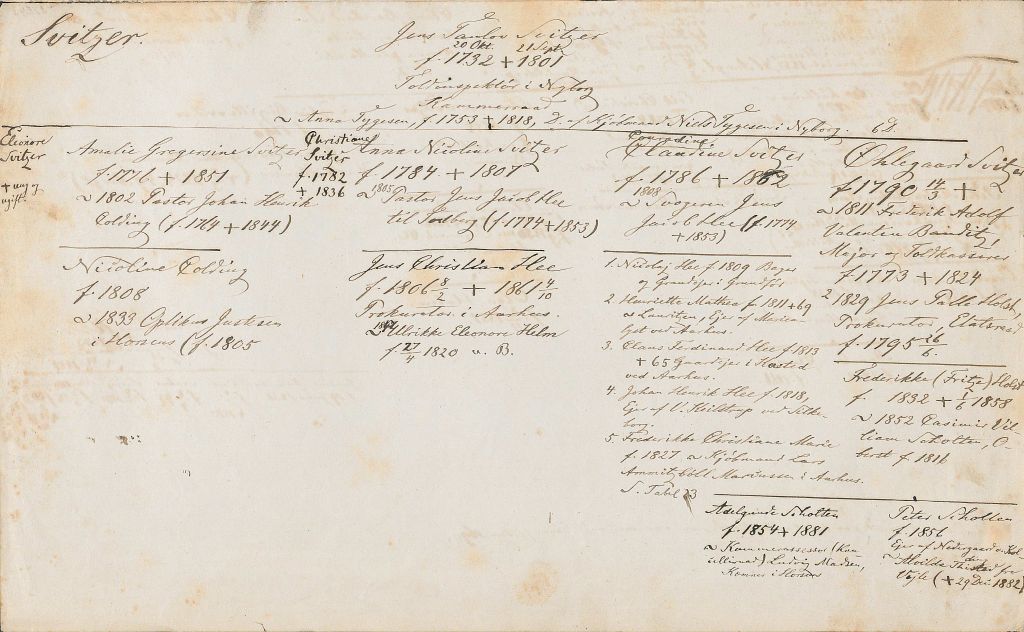 Svitzer.
Jens Taulov Svitzer
20 Okt. 21 Sept
f. 1732 + 1801
Toldinspektör i Nyborg
Kammerraad
~ Anna Tygesen, f. 1753 + 1818, D. af Kjöbmand Niels Tygesen i Nyborg. 6 D.
Eleonore
Svitzer
+ ung og
ugift.
Amalie Gregersine Svitzer
f. 1776 + 1851
~ 1802 Pastor Johan Henrik
Colding (f. 1764 + 1844)
Nicoline Colding
f. 1808
~ 1833 Optikus Jacksen
i Horsens (f. 1805
Christiane
Svitzer
f. 1782
+ 1836
Anna Nicoline Svitzer
f. 1784 + 1807
~ 1805 Pastor Jens Jacob Hee
til (f. 1774 + 1853)
Jens Christian Hee
f. 1806 8/2 + 1861 4/10
Prokurator i Aarhus.
~ Ulrikke Eleonore Helm
f. 27/4 1820 u. B.
Conradine
Claudine Svitzer
f. 1786 + 1862
1808
~ Svogeren Jens
Jacob Hee (f. 1774
+ 1853)
1. Nicolaj Hee f. 1809 Bager
og Grandejer i
2. Henriette Mathea f. 1811 + 69
~ Lauritsen, Ejer af Marien-
lyst ved Aarhus.
3. Claus Ferdinand Hee f. 1813
+ 65 Gaardejer i Hasted
ved Aarhus.
4. Johan Henrik Hee f. 1818,
Ejer af V. ved Silke-
borg.
5. Frederikke Christiane Marie
f. 1827 ~ Kjöbmand Lars
Ammitzböll Mariussen i Aarhus.
S. Tabel 23
Öhllegaard Svitzer
f. 1790 14/3 +
~ 1811 Frederik Adolf
Valentin Banditz,
Major og Toldkasserer
f. 1773 + 1824
2 1829 Jens Palle Holst,
Prokurator, Etatsraad
f. 1795 26/6.
Frederikke (Fritze) Holst
f. 1832 + 2/6 1858
~ 1852 Casimir Vil-
liam Scholten, O-
berst f. 1816
Adelgunde Scholten
f. 1854 + 1881
~ Kammerassessor (Kan-
cellieraad) Ludvig Madsen,
Kæmner i Horsens
Peter Scholten
f. 1856
Ejer af
~ Thilda Thisted fra
Vejle (+ 29 Dec. 1882)